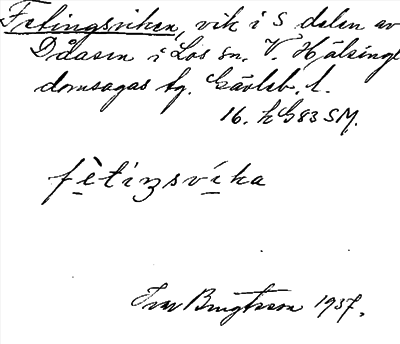 Fetingsviken, vik i S delen av
Dåasen i Los sn. V. Hälsingl
domsagas tg. Gävleb. l.
16. h G83 SM.
fètiŋsvika
Ivar Bengtsson 1937.